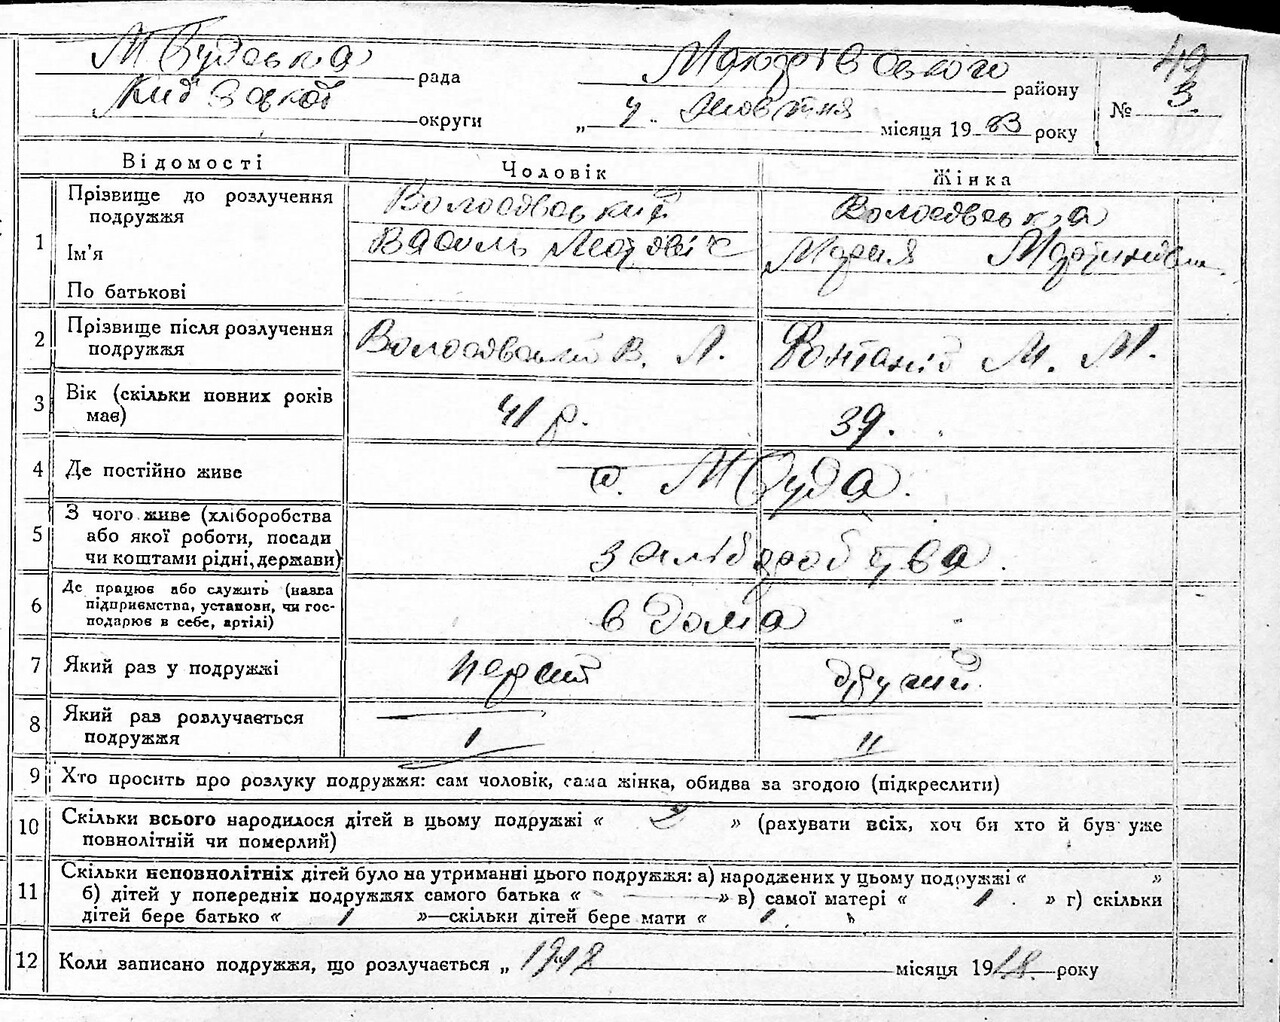 М Будська рада Макарівського району 49
Київської округи „ 4 " Жовтня місяця 19 23 року № 3.
Відомості Чоловік Жінка
1 Прізвище до розлучення подружжя Волосовський Волосовська
Ім'я Василь Мария Мартинівна
По батькові
2 Прізвище після розлучення подружжя В. Л. М. М.
3 Вік (скільки повних років має) 41 р. 39.
4 Де постійно живе с. М Буда.
5 З чого живе (хліборобства
або якої роботи, посади
чи коштами рідні, держави) з хліборобства.
6 Де працює або служить (назва
підприємства, установи, чи гос-
подарює в себе, артілі) в дома
7 Який раз у подружжі перший другий.
8 Який раз розлучається подружжя I II
9 Хто просить про розлуку подружжя: сам чоловік, сама жінка, обидва за згодою (підкреслити)
10 Скільки всього народилося дітей в цьому подружжі « 2 » (рахувати всіх, хоч би хто й був уже
повнолітній чи померлий)
11 Скільки неповнолітніх дітей було на утриманні цього подружжя: а) народжених у цьому подружжі « »
б) дітей у попередніх подружжях самого батька « — » в) самої матері « 1 . » г) скільки
дітей бере батько « 1 »—скільки дітей бере мати « 1. »
12 Коли записано подружжя, що розлучається „ місяця 19 18 року